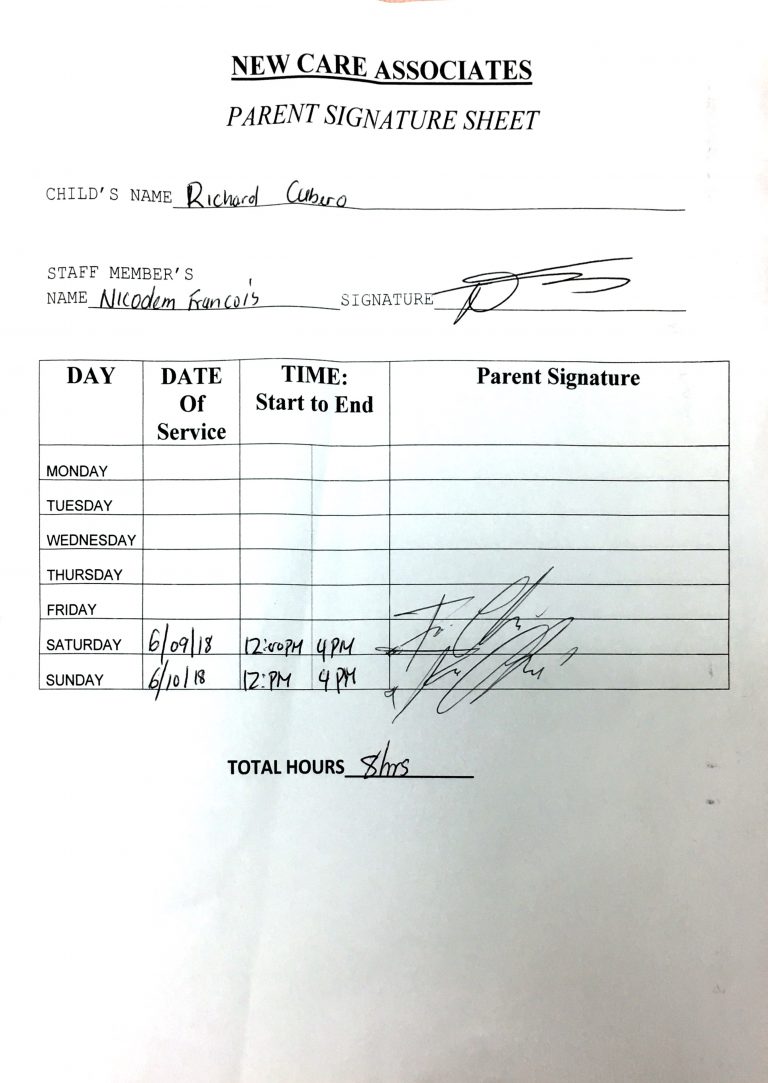 NEW CARE ASSOCIATES
PARENT SIGNATURE SHEET
CHILD'S NAME Richard Cubero
STAFF MEMBER'S
NAME Nicodem Francois SIGNATURE
DAY DATE Of Service TIME: Start to End Parent Signature
MONDAY
TUESDAY
WEDNESDAY
THURSDAY
FRIDAY
SATURDAY 6/09/18 12:00PM 4PM
SUNDAY 6/10/18 12:PM 4PM
TOTAL HOURS 8hrs